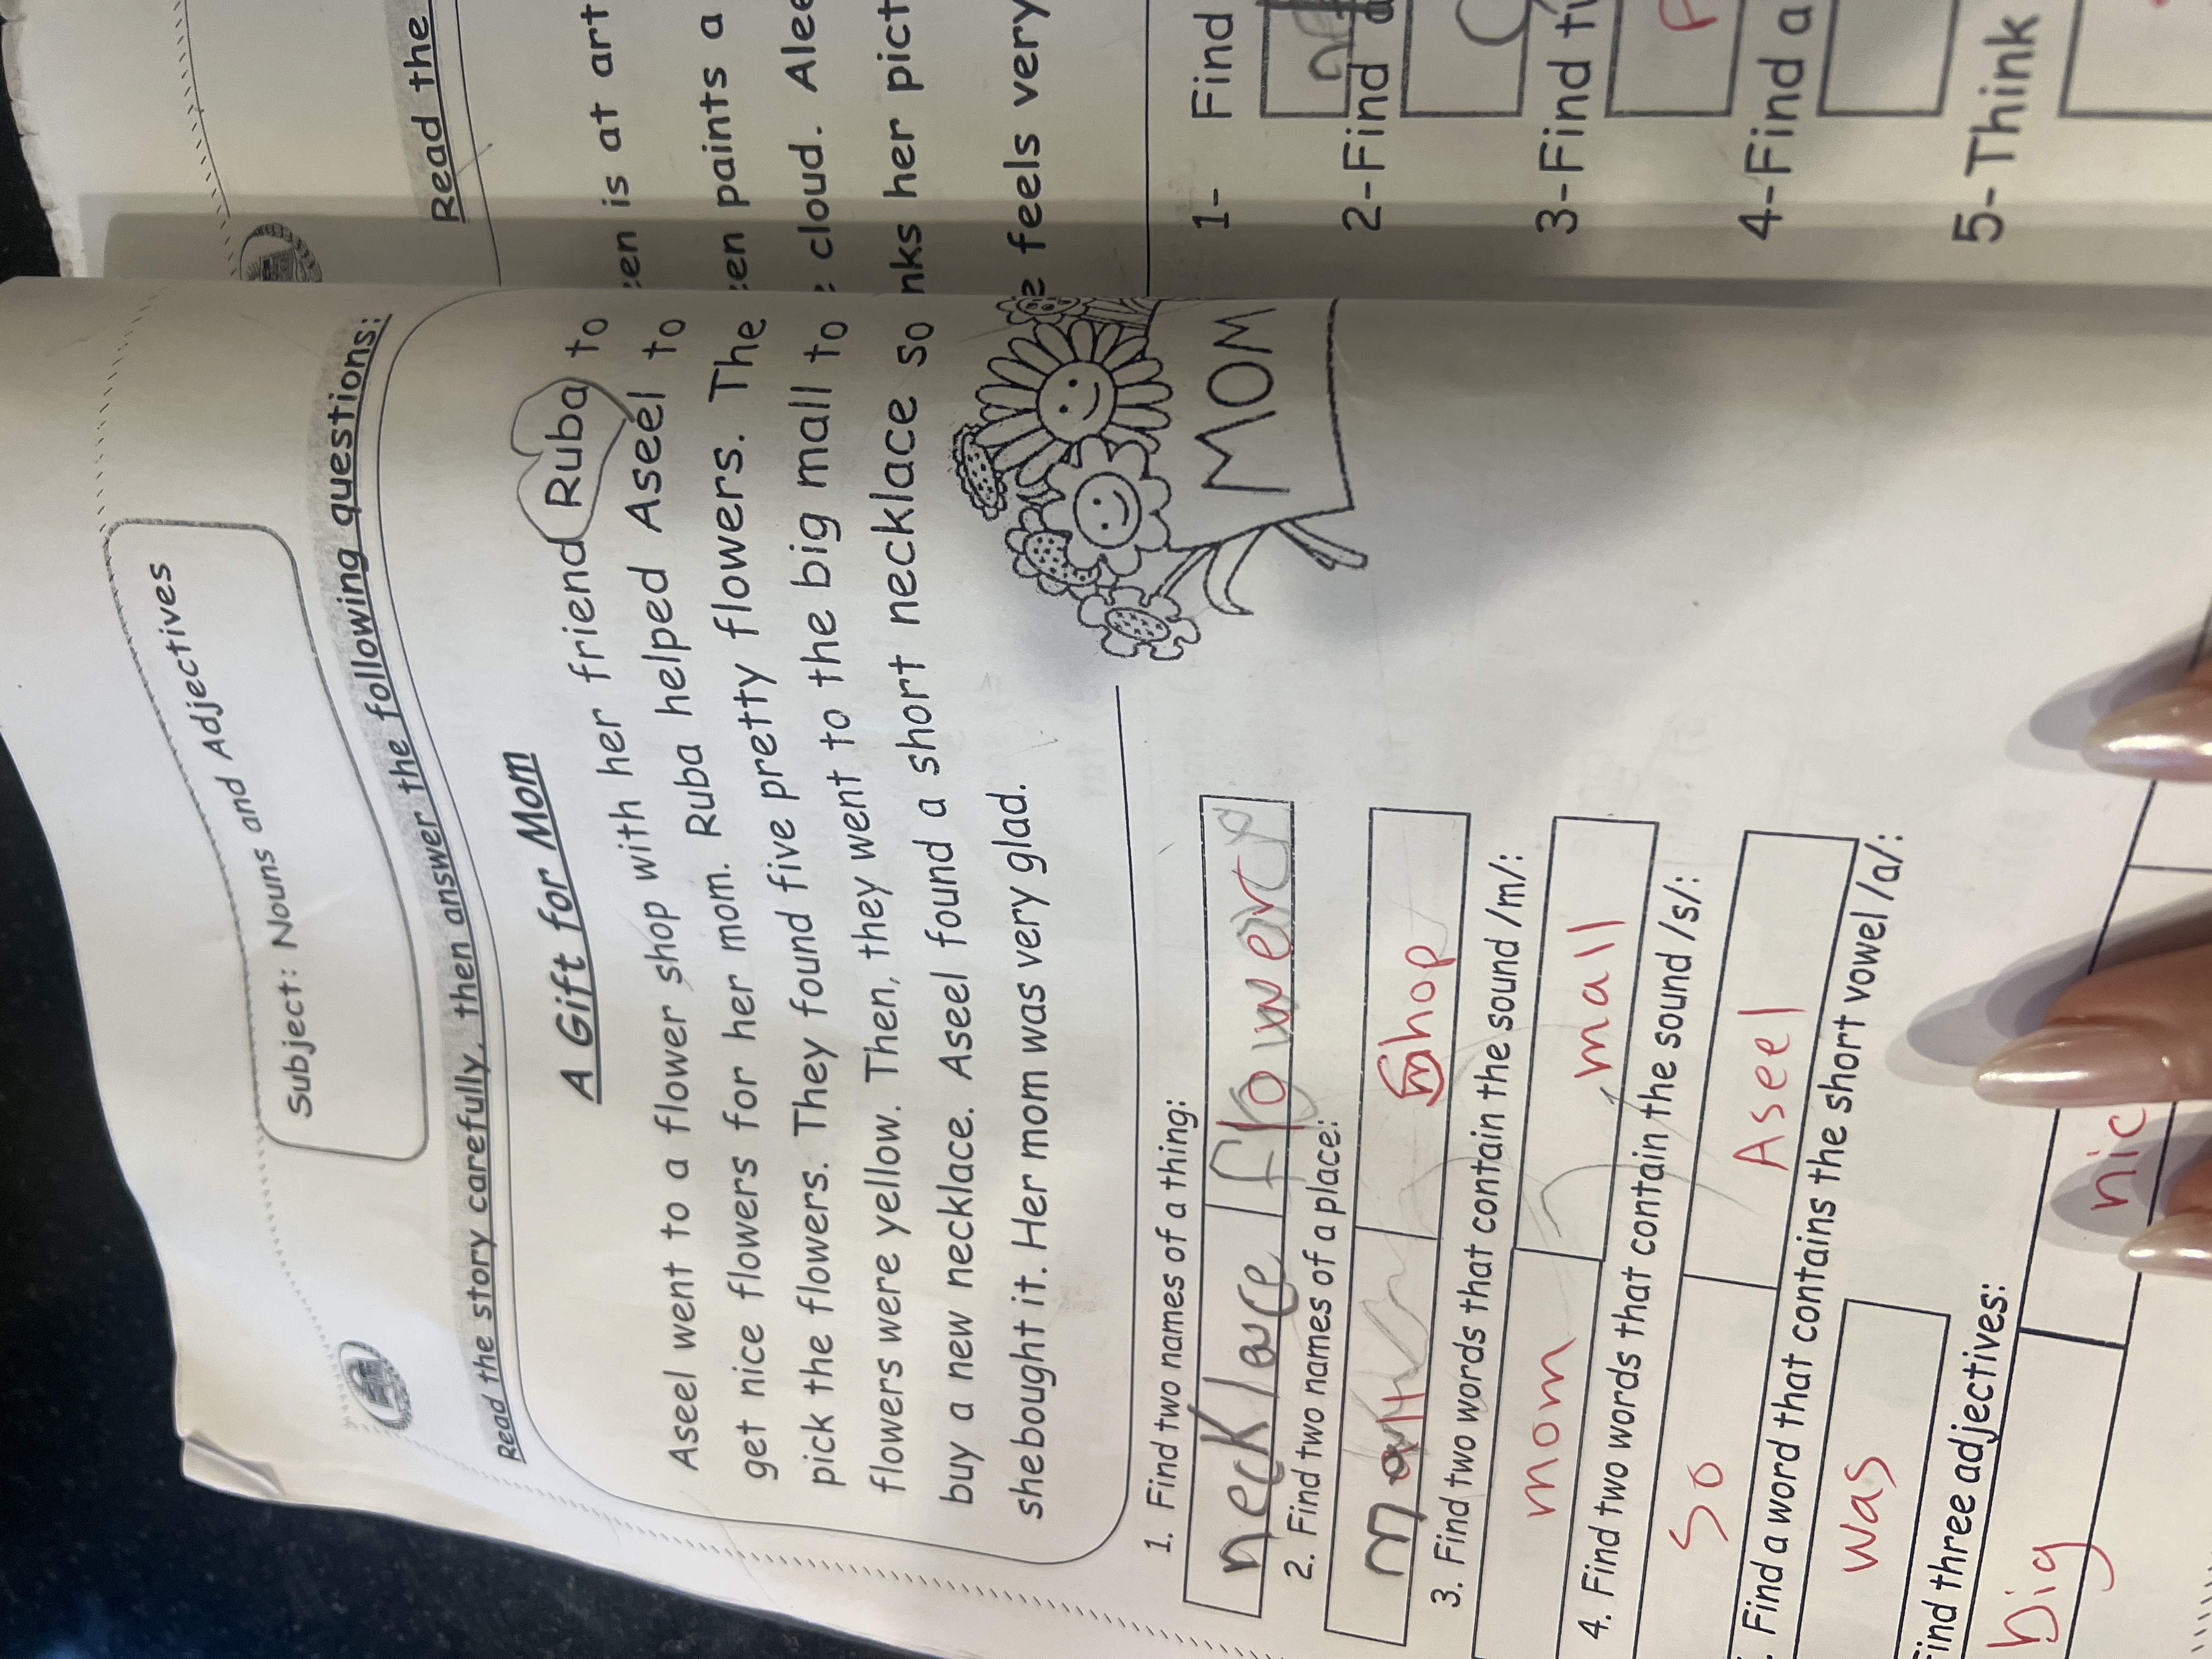 Subject: Nouns and Adjectives
Read the story carefully, then answer the following questions:
A Gift for Mom
Aseel went to a flower shop with her friend Ruba to
get nice flowers for her mom. Ruba helped Aseel to
pick the flowers. They found five pretty flowers. The
flowers were yellow. Then, they went to the big mall to
buy a new necklace. Aseel found a short necklace so
shebought it. Her mom was very glad.
MOM
1. Find two names of a thing:
necklace flowers
2. Find two names of a place:
mall shop
3. Find two words that contain the sound /m/:
mom mall
4. Find two words that contain the sound /s/:
so Aseel
. Find a word that contains the short vowel /a/:
was
ind three adjectives:
big nic
Read the
en is at art
en paints a
cloud. Alee
nks her pict
feels very
1- Find
2-Find a
3-Find tw
4-Find a
5-Think